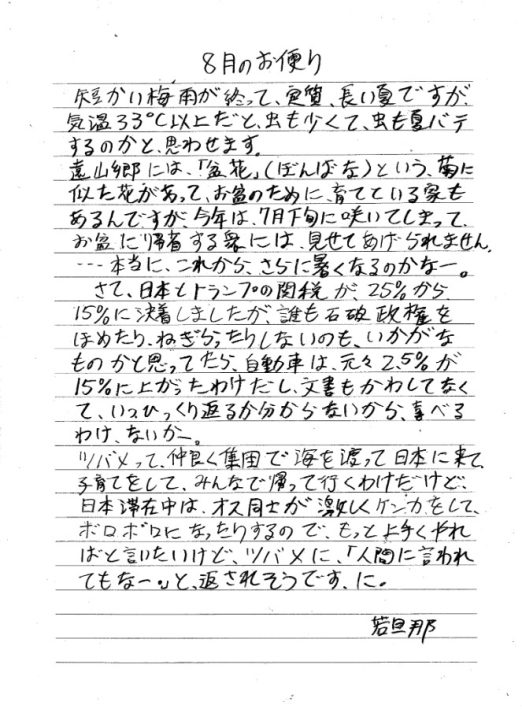 8月のお便り
短かい梅雨が終って、実質、長い夏ですが、
気温33℃以上だと、虫も少くて、虫も夏バテ
するのかと、思わせます。
遠山郷には、「盆花」(ぼんばな)という、菊に
似た花があって、お盆のために、育てている家も
あるんですが、今年は、7月下旬に咲いてしまって、
お盆に帰省する衆には、見せてあげられません。
…本当に、これから、さらに暑くなるのかなー。
さて、日本とトランプの関税が、25%から
15%に決着しましたが、誰も石破政権を
ほめたり、ねぎらったりしないのも、いかがな
ものかと思ってたら、自動車は、元々2.5%が
15%に上がったわけだし、文書もかわしてなく
て、いつひっくり返るか分からないから、喜べる
わけ、ないかー。
ツバメって、仲良く集団で海を渡って日本に来て、
子育てをして、みんなで帰って行くわけだけど、
日本滞在中は、オス同士が激しくケンカをして、
ボロボロになったりするので、もっと上手くやれ
ばと言いたいけど、ツバメに、「人間に言われ
てもなー。」と、返されそうです、に。
若旦那